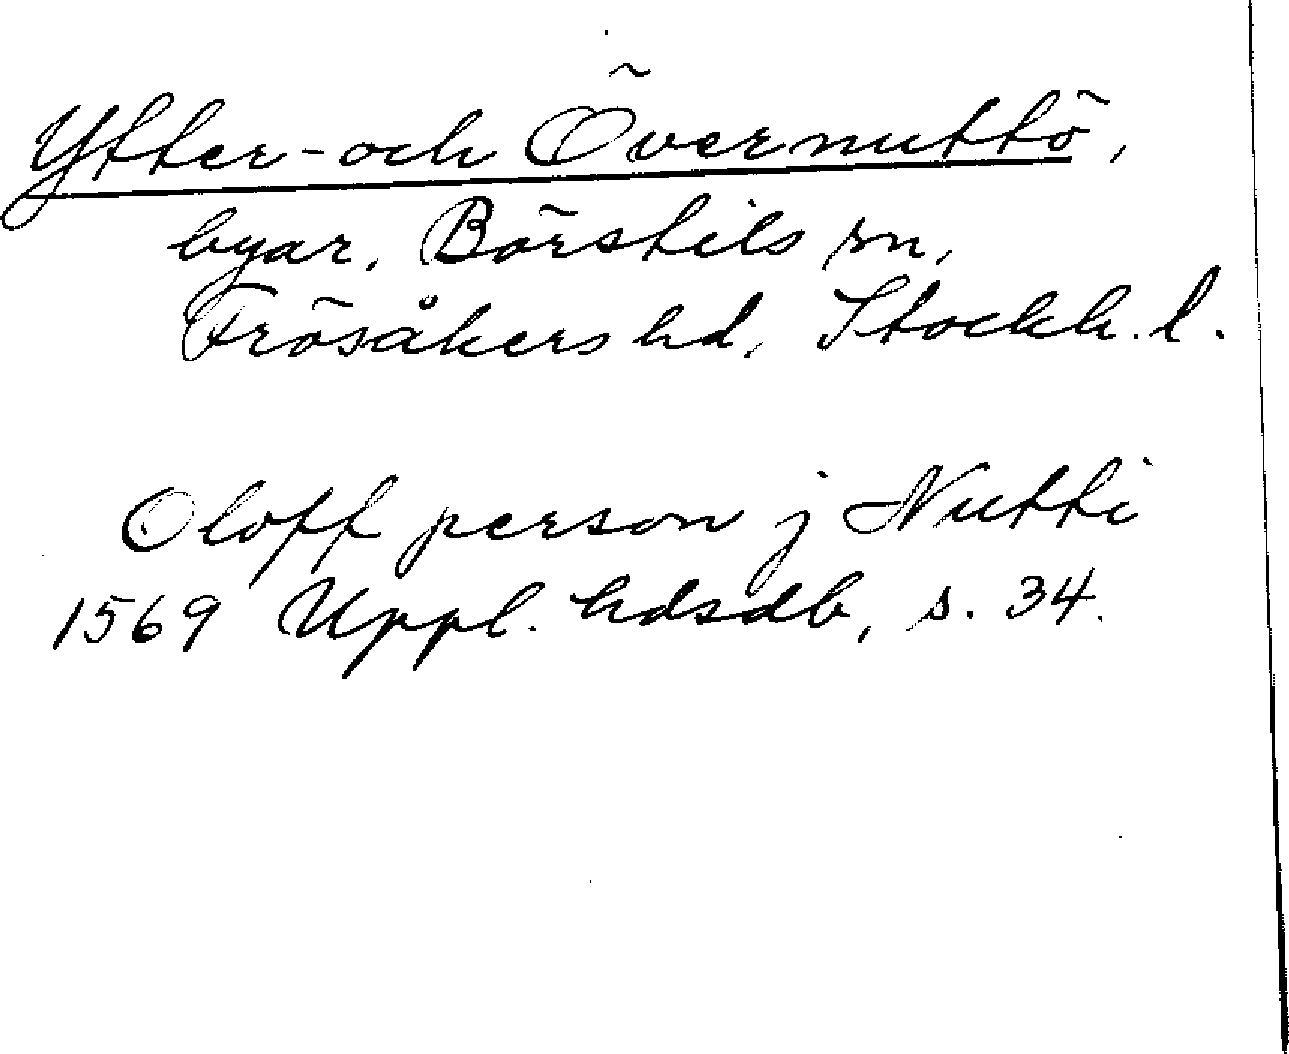 Ytter- och Övernuttö,
byar, Börstils sn,
Frösåkers hd, Stockh. l.
Oloff person j Nutti
1569 Uppl. hdsdb, s. 34.